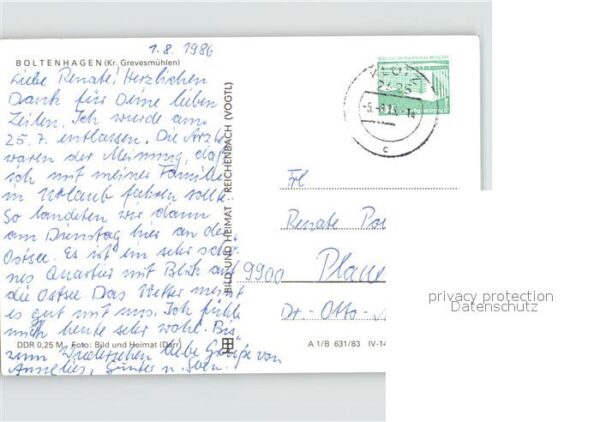 1.8.1986
BOLTENHAGEN (Kr. Grevesmühlen)
Liebe Renate! Herzlichen
Dank für Deine lieben
Zeilen. Ich wurde am
25.7. entlassen. Die Ärzte
waren der Meinung, daß
ich mit meiner Familie
in Urlaub fahren sollte.
So landeten wir dann
am Dienstag hier an der
Ostsee. Es ist ein sehr schö-
nes Quartier mit Blick auf
die Ostsee. Das Wetter meint
es gut mit uns. Ich fühle
mich heute sehr wohl. Bis
zum Wiedersehen liebe Grüße von
Annelies, Günter u. Sven.
DDR 0,25 M Foto: Bild und Heimat (Darr)
BILD UND HEIMAT REICHENBACH (VOGTL)
A 1/B 631/83 IV-14
KLÜTZ
2425
c
Frl
Renate
9900 Plaue
Dr.-Otto-
privacy protection
Datenschutz